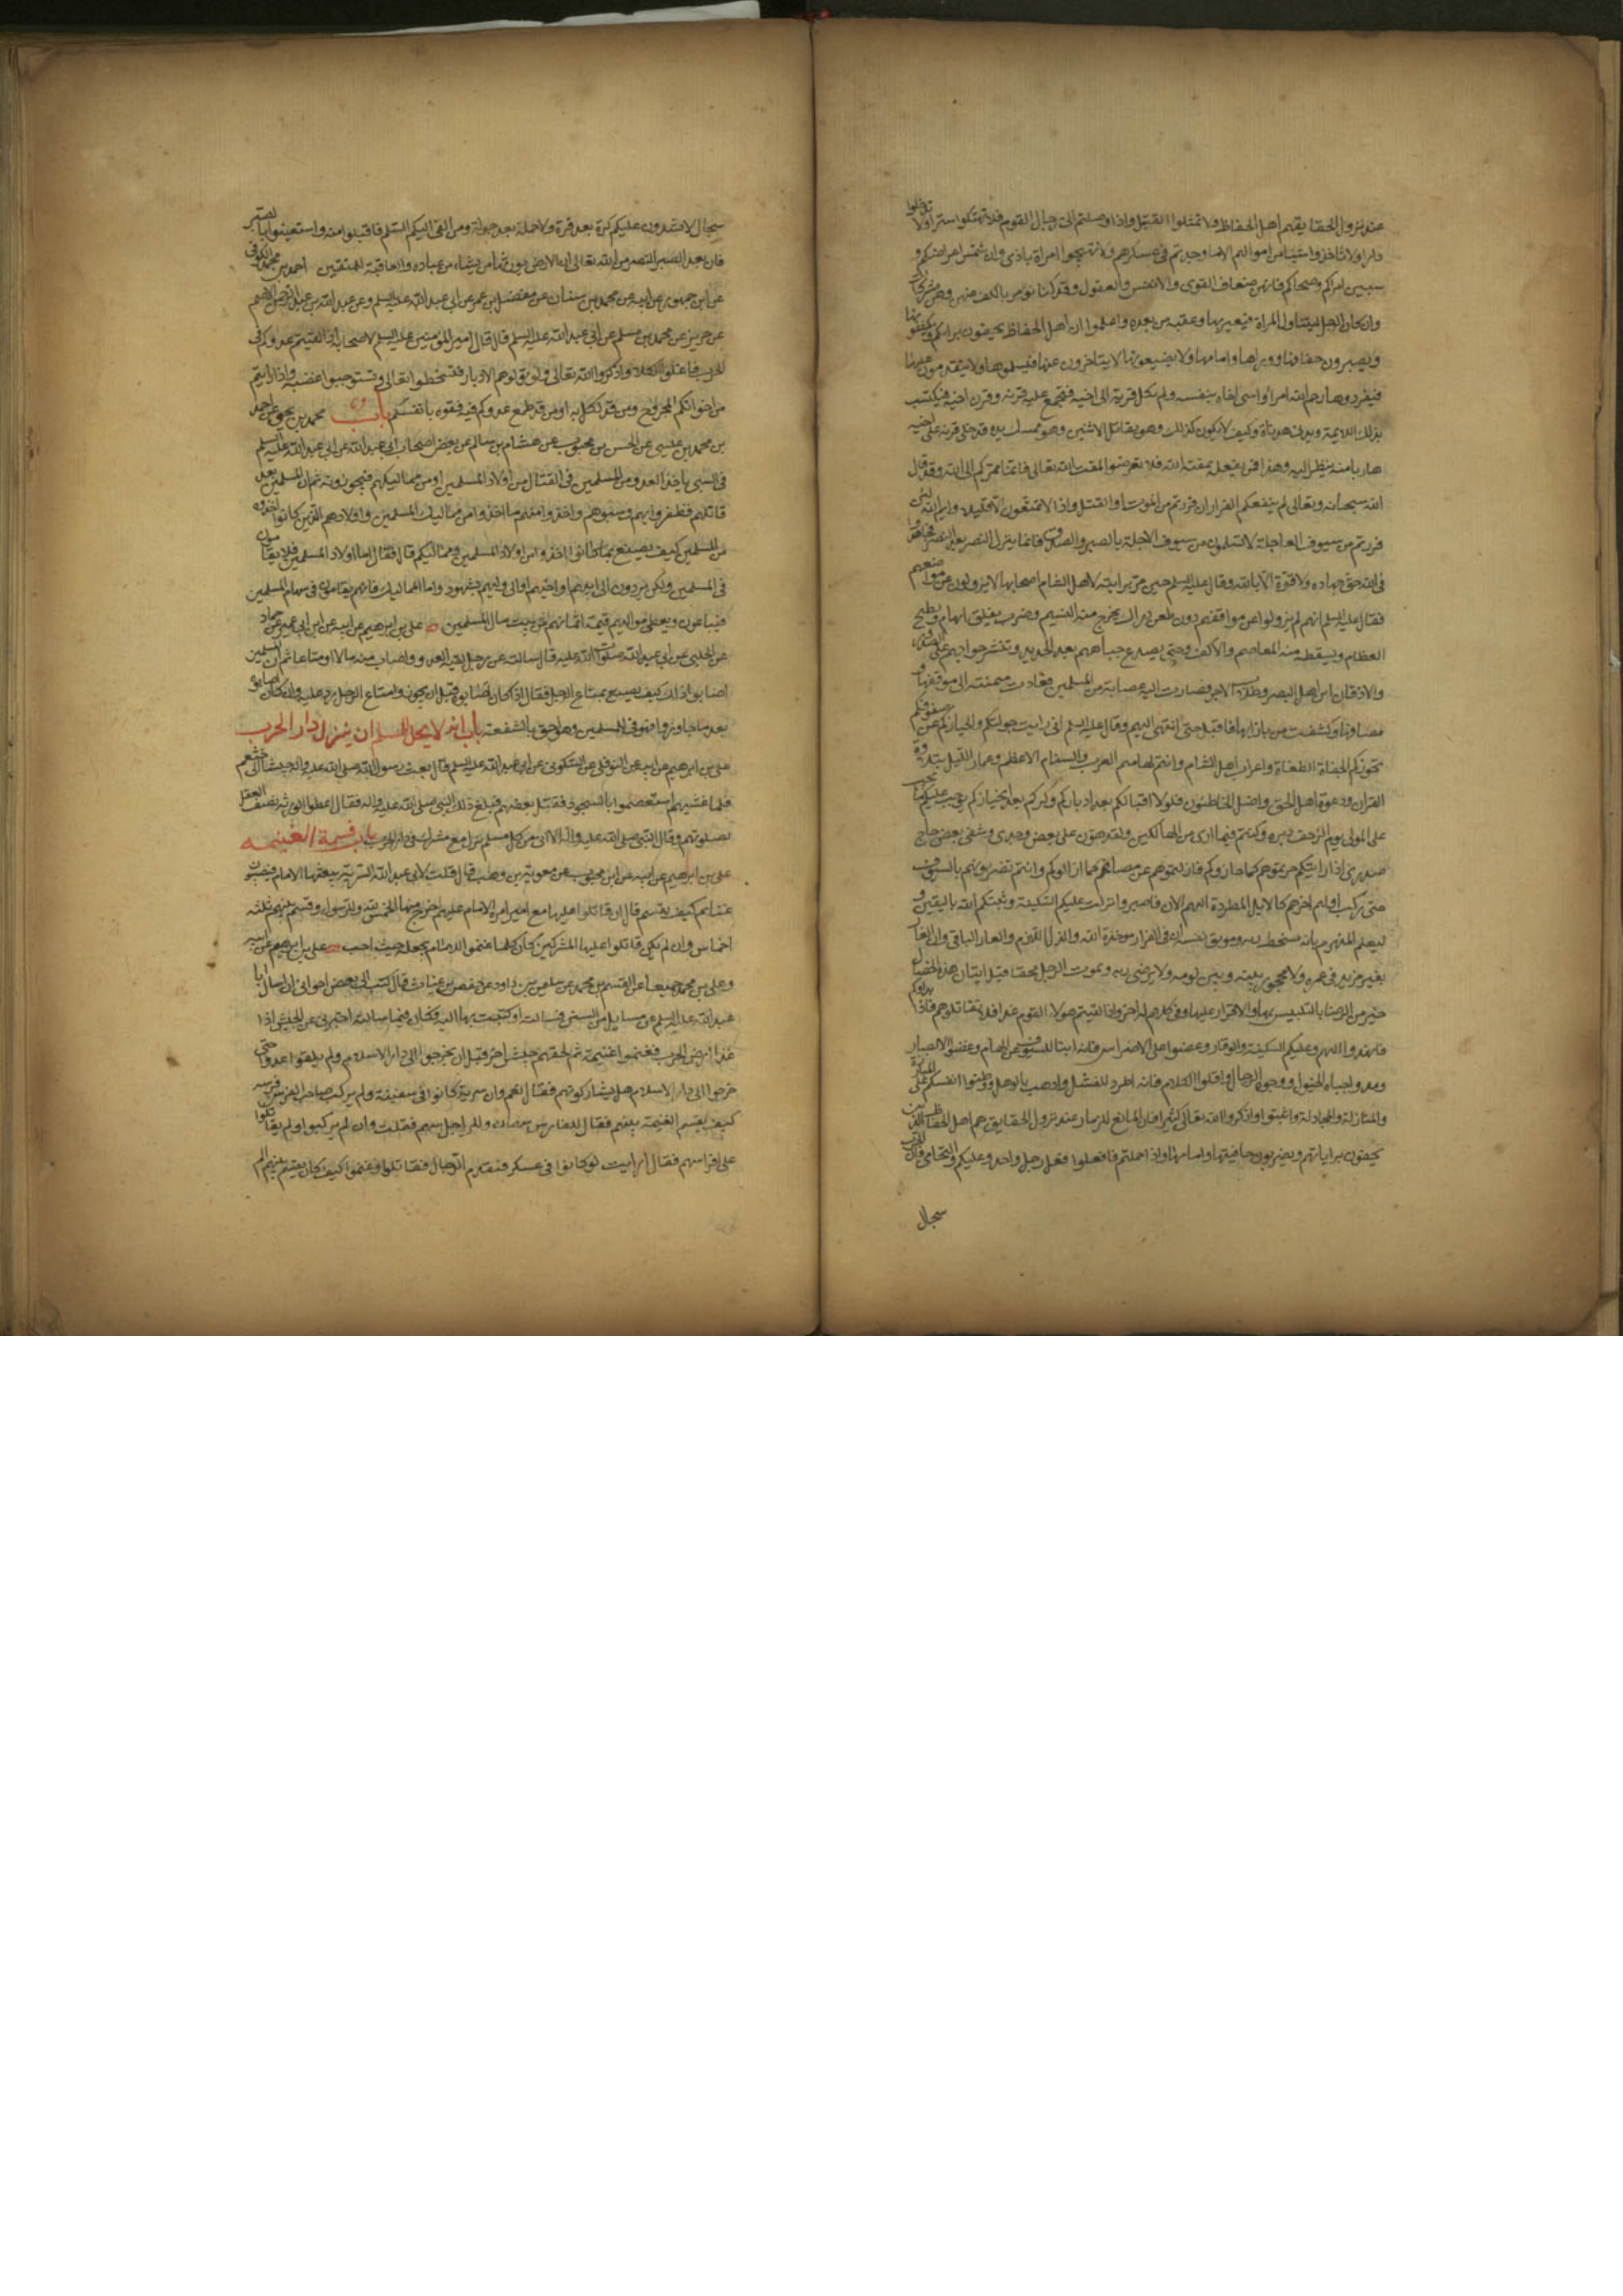 عند نزول الحقايق هم اهل الحفاظ ولا تمثلوا القتيل واذا وصلتم الى رجال القوم فلا تهتكوا سترا ولا تدخلوا
دارا ولا تاخذوا شيئا من اموالهم الا ما وجدتم في عسكرهم ولا تهيجوا امراة باذى وان شتمن اعراضكم و
سببن امراكم وصلحاكم فانهن ضعاف القوى والانفس والعقول وقد كنا نومر بالكف عنهن وهن مشركات
وان كان الرجل ليتناول المراة فيعير بها وعقبه من بعده واعلموا ان اهل الحفاظ يحفون براياتهم ويكتنفونها
ويصيرون حفافيها ووراها وامامها ولا يضيعونها لا يتاخرون عنها فيسلموها ولا يتقدمون عليها
فيفردوها رحم الله امرأ واسى اخاه بنفسه ولم يكل قرنه الى اخيه فيجتمع عليه قرنه وقرن اخيه فيكتسب
بذلك اللايمة وياتى بدناة وكيف لا يكون كذلك وهو يقاتل الاثنين وهو ممسك يده قد خلى قرنه على اخيه
هاربا منه ينظر اليه وهذا فمن يفعله يمقته الله فلا تعرضوا لمقت الله تعالى فانما ممركم الى الله وقد قال
الله سبحانه وتعالى لن ينفعكم الفرار ان فررتم من الموت او القتل واذا لا تمتعون الا قليلا وايم الله لئن
فررتم من سيوف العاجلة لا تسلمون من سيوف الاجلة بالصبر والصدق فانما ينزل النصر بعد الصبر فجاهدوا
في الله حق جهاده ولا قوة الا بالله وقال عليه السلم حين مر براية لاهل الشام اصحابها لا يزولون عن مواضعهم
فقال عليه السلم انهم لن يزولوا عن مواقفهم دون طعن دراك يخرج منه النسيم وضرب يفلق الهام ويطيح
العظام ويسقط منه المعاصم والاكف وحتى يصدع جباههم بعمد الحديد وتنثر حواجبهم على الصدور
والاذقان اين اهل الصبر وطلاب الاجر فصارت اليه عصابة من المسلمين فعادت ميمنته الى موقفها و
مصافها وكشفت من بازائها فاقبل حتى انتهى اليهم وقال عليه السلم انى رايت جولتكم وانحيازكم عن صفوفكم
تحوزكم الجفاة الطغاة واعراب اهل الشام وانتم لهاميم العرب والسنام الاعظم وعمار الليل بتلاوة
القران ودعوة اهل الحق واضل الخاطئون فلولا اقبالكم بعد ادباركم وكركم بعد انحيازكم لوجب عليكم ما يجب
على المولى يوم الزحف دبره وكنتم فيما ارى من الهالكين ولقد هون على بعض وجدى وشفى بعض حاج
صدري اذا رايتكم حزتموهم كما حازوكم فازلتموهم عن مصافهم كما ازالوكم وانتم تضربونهم بالسيوف
حتى ركب اولهم اخرهم كالابل المطردة الهيم الان فاصبروا نزلت عليكم السكينة وثبتكم الله باليقين و
ليعلم المنهزم بانه مسخط ربه وموبق نفسه ان في الفرار موجدة الله والذل اللازم والعار الباقى وان الفار
لغير مزيد في عمره ولا محجوز بينه وبين يومه ولا يرضى ربه ولموت الرجل محقا قبل اتيان هذه الخصال
خير من الرضا بالتلبيس بها والاقرار عليها وفي كلام له اخر واذا لقيتم هولاء القوم غدا فلا تقاتلوهم حتى يقاتلوكم فاذا بداوكم
فانهدوا اليهم وعليكم السكينة والوقار وعضوا على الاضراس فانه انبا للسيوف عن الهام وغضوا الابصار
ومدوا جباه الخيول ووجوه الرجال واقلوا الكلام فانه اطرد للفشل واذهب بالوهل ووطنوا انفسكم على المبارزة
والمنازلة والمجادلة واثبتوا واذكروا الله تعالى كثيرا فان المانع للذمار عند نزول الحقايق هم اهل الحفاظ الذين
يحفون براياتهم ويضربون حافتيها وامامها واذا حملتم فافعلوا فعل رجل واحد وعليكم بالتحامى فان الحرب
سجال
سجال لا يشدون عليكم كرة بعد فرة ولا حملة بعد جولة ومن القى اليكم السلم فاقبلوا منه واستعينوا بالصبر
فان بعد الصبر النصر من الله تعالى ان الارض لله يورثها من يشاء من عباده والعاقبة للمتقين احمد بن محمد الكوفى
عن ابن جمهور عن ابيه عن محمد بن سنان عن مفضل بن عمر عن ابى عبد الله عليه السلم وعن عبد الله بن عبد الرحمن الاصم
عن حريز عن محمد بن مسلم عن ابى عبد الله عليه السلم قال قال امير المومنين عليه السلم لاصحابه اذا لقيتم عدوكم في
الحرب فاقلوا الكلام واذكروا الله تعالى ولا تولوهم الادبار فتسخطوا الله تعالى وتستوجبوا غضبه واذا رايتم
من اخوانكم المجروح ومن قد نكل به او من قد طمع عدوكم فيه فقوه بانفسكم باب محمد بن يحيى عن احمد
بن محمد بن عيسى عن الحسن بن محبوب عن هشام بن سالم عن بعض اصحاب ابى عبد الله عن ابى عبد الله عليه السلم
في السبى ياخذ العدو من المسلمين في القتال من اولاد المسلمين او من مماليكهم فيحوزونه ثم ان المسلمين بعد
قاتلوهم فظفروا بهم وسبوهم واخذوا منهم ما اخذوا من مماليك المسلمين واولادهم الذين كانوا اخذوه
من المسلمين كيف يصنع بما كانوا اخذوه من اولاد المسلمين ومماليكهم قال فقال اما اولاد المسلمين فلا يقامون
في سهام المسلمين ولكن يردون الى ابيهم او اخيهم او الى وليهم بشهود واما المماليك فانهم يقامون في سهام المسلمين
فيباعون ويعطى مواليهم قيمة اثمانهم من بيت مال المسلمين علي بن ابرهيم عن ابيه عن ابن ابى عمير عن حماد
عن الحلبي عن ابى عبد الله صلوات الله عليه قال سالته عن رجل لقيه العدو واصاب منه مالا او متاعا ثم ان المسلمين
اصابوا ذلك كيف يصنع بمتاع الرجل فقال اذا كان اصابوه قبل ان يحوزوا متاع الرجل رد عليه وان كان اصابوه
بعد ما حازوه فهو فيء المسلمين وهو احق بالشفعة باب انه لا يحل للمسلم ان ينزل دار الحرب
علي بن ابرهيم عن ابيه عن النوفلى عن السكونى عن ابى عبد الله عليه السلم قال بعث رسول الله صلى الله عليه واله جيشا الى خثعم
فلما غشيهم استعصموا بالسجود فقتل بعضهم فبلغ ذلك النبي صلى الله عليه واله فقال اعطوا الورثة نصف العقل
بصلوتهم وقال النبي صلى الله عليه واله الا انى برئ من كل مسلم نزل مع مشرك في دار الحرب باب قسمة الغنيمه
علي بن ابرهيم عن ابيه عن ابن محبوب عن معوية بن وهب قال قلت لابى عبد الله السرية يبعثها الامام فيصيبون
غنايم كيف يقسم قال ان قاتلوا عليها مع امير امره الامام عليهم اخرج منها الخمس لله وللرسول وقسم بينهم ثلثة
اخماس وان لم يكن قاتلوا عليها المشركين كان كلما غنموا للامام يجعله حيث احب علي بن ابرهيم عن ابيه
وعلى بن محمد جميعا عن القسم بن محمد عن سليمن بن داود عن حفص بن غياث قال كتب الى بعض اخوانى ان اسال ابا
عبد الله عليه السلم عن مسايل من السنن فسالته او كتبت بها اليه فكان فيما سالته اخبرنى عن الجيش اذا
غزا ارض الحرب فغنموا غنيمة ثم لحقهم جيش اخر قبل ان يخرجوا الى دار الاسلام ولم يلقوا عدوا حتى
خرجوا الى دار الاسلام هل يشاركونهم فقال نعم وان سرية كانوا في سفينة ولم يركب صاحب الفرس فرسه
كيف يقسم الغنيمة بينهم فقال للفارس سهمان وللراجل سهم فقلت وان لم يركبوا ولم يقاتلوا
على افراسهم فقال ارايت لو كانوا في عسكر فتقدم الرجال فقاتلوا وغنموا كيف كان يقسم بينهم الم